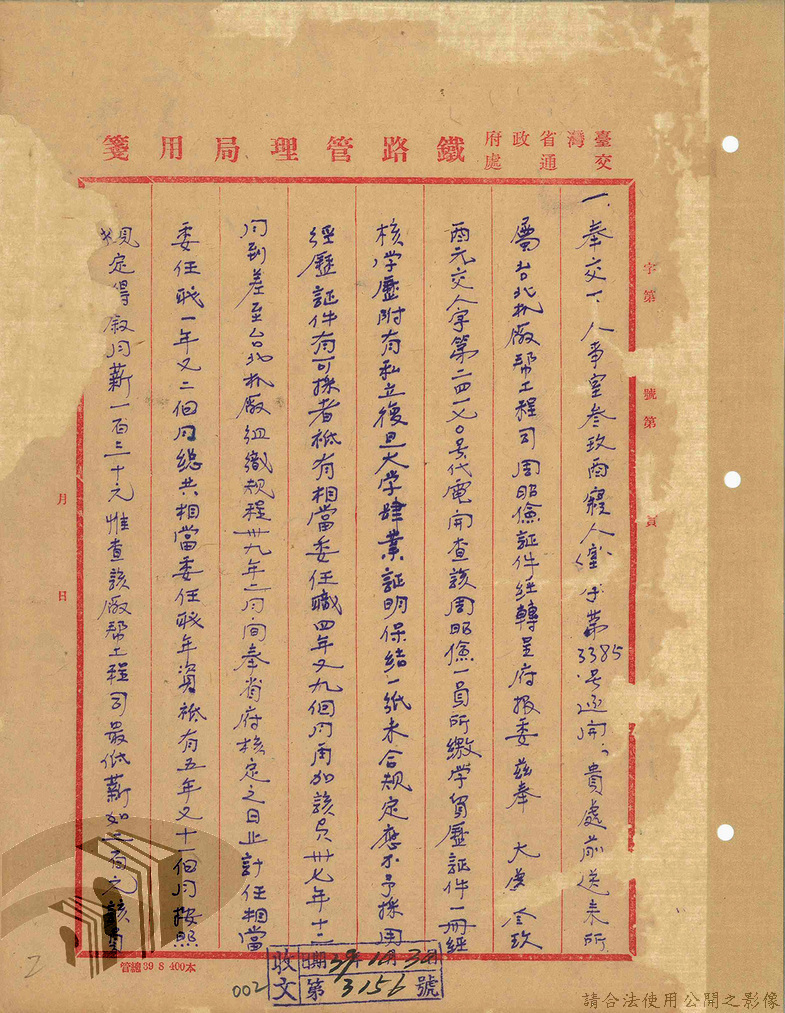 臺灣省政府交通處鐵路管理局用箋
字第　　號第　　頁
一、奉交下人事室叁玖酉寢人 字第3385号函開、貴處前送來所
屬台北机廠幫工程司周昭儉証件經轉呈府報委茲奉　大處 叁玖
酉元交人字第二四一七〇号代電開查該周昭儉一員所繳学資歷証件一冊經
核学歷附有私立復旦大学肄業証明保結一紙未合規定應不予採用
經歷証件有可採者祇有相當委任職四年又九個月再加該員卅七年十二
月到差至台北机廠組織規程卅九年二月間奉省府核定之日止計任相當
委任職一年又二個月總共相當委任職年資祇有五年又十一個月按照
規定得敘月薪一百三十元惟查該廠幫工程司最低薪如二百之該
月　日
管總 39 8 400本
收文
日期 39年10月3日
第 3156 號
002
2
請合法使用公開之影像